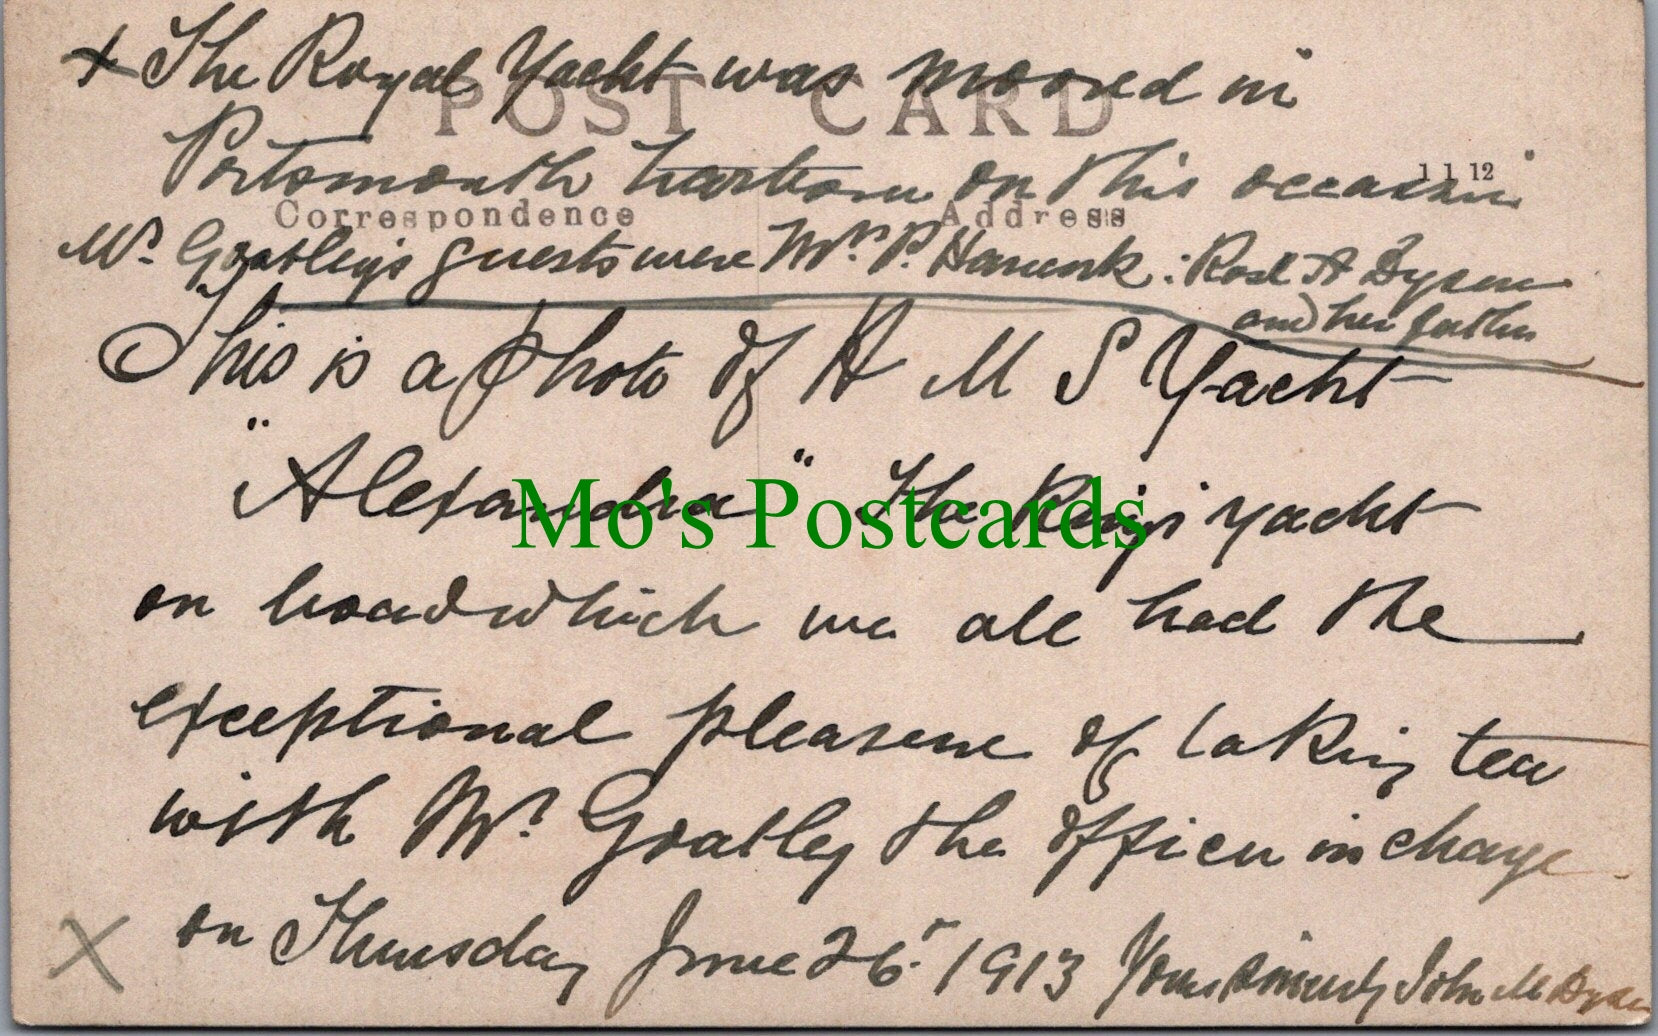 x The Royal Yacht was moored in
POST CARD
Portsmouth harbour on this occasion
11 12
Correspondence Address
Mr. Goatley's guests were Mr. P. : Rose A Byson
and her father
This is a photo of H M S Yacht
"Alexandra" The King's yacht
Mo's Postcards
on board which we all had the
exceptional pleasure of taking tea
with Mr. Goatley the officer in charge
on Thursday June 26. 1913 Yours sincerely John M Byson
X